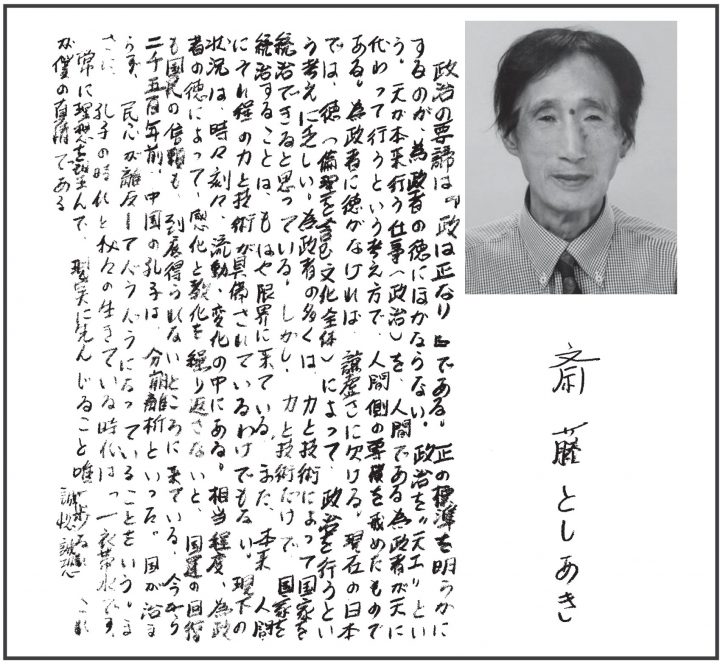 斎藤としあき
政治の要諦は『政は正なり』である。正の標準を明らかに
するのが、為政者の徳にほかならない。政治を“天工”とい
う。天が本来行う仕事(政治)を、人間である為政者が天に
代わって行うという考え方で、人間側の専横を戒めたもので
ある。為政者に徳がなければ、謙虚さに欠ける。現在の日本
では、徳(倫理を含む文化全体)によって、政治を行うとい
う考えに乏しい。為政者の多くは、力と技術によって国家を
統治できると思っている。しかし、力と技術だけで、国家を
統治することは、もはや限界に来ている。また、本来、人間
にそれ程の力と技術が具備されているわけでもない。現下の
状況は、時々刻々、流動・変化の中にある。相当程度、為政
者の徳によって、感化と教化を繰り返さないと、国運の回復
も国民の信頼も、到底得られないところに来ている。今から
二千五百年前、中国の孔子は、分崩離析といった。国が治ま
らず、民心が離反して になっていることをいう。ま
さに、孔子の時代と我々の生きている時代は、“一衣帯水”です。
常に理想を望んで、現実に先んじること唯一歩 これ
が僕の真情である 誠惶誠恐